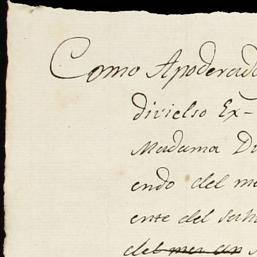 Como Apoderad
divielso Ex-
Madama Du
endo del me
ente del suh
del mes an